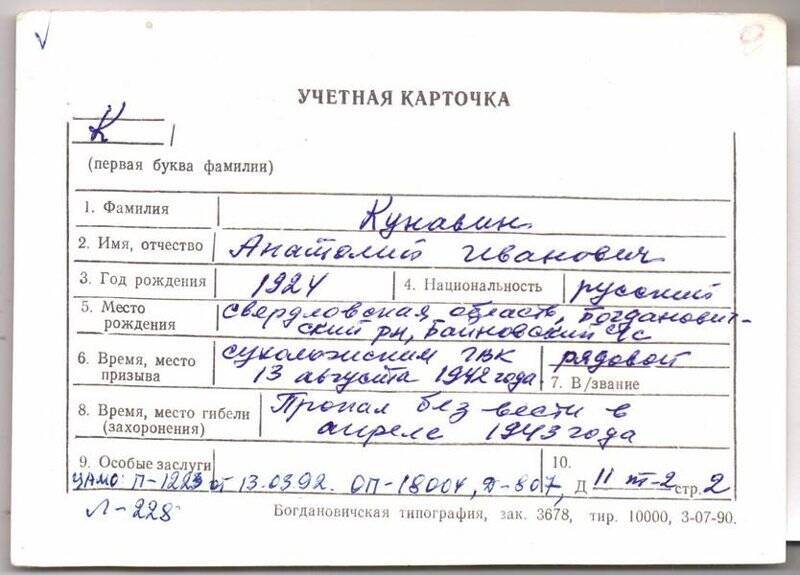 УЧЕТНАЯ КАРТОЧКА
К
(первая буква фамилии)
1. Фамилия Кунавин
2. Имя, отчество Анатолий Иванович
3. Год рождения 1924 4. Национальность русский
5. Место рождения Свердловская область, Богданович-
ский рн, Байновский с/с
6. Время, место призыва Сухоложским ГВК
13 августа 1942 года
7. В/звание рядовой
8. Время, место гибели (захоронения) Пропал без вести в
апреле 1943 года
9. Особые заслуги 10.
ЦАМО: П-1223 от 13.03.92. ОП-18004, Д-807, Д 11 т-2 стр. 2
Л-228
Богдановичская типография, зак. 3678, тир. 10000, 3-07-90.